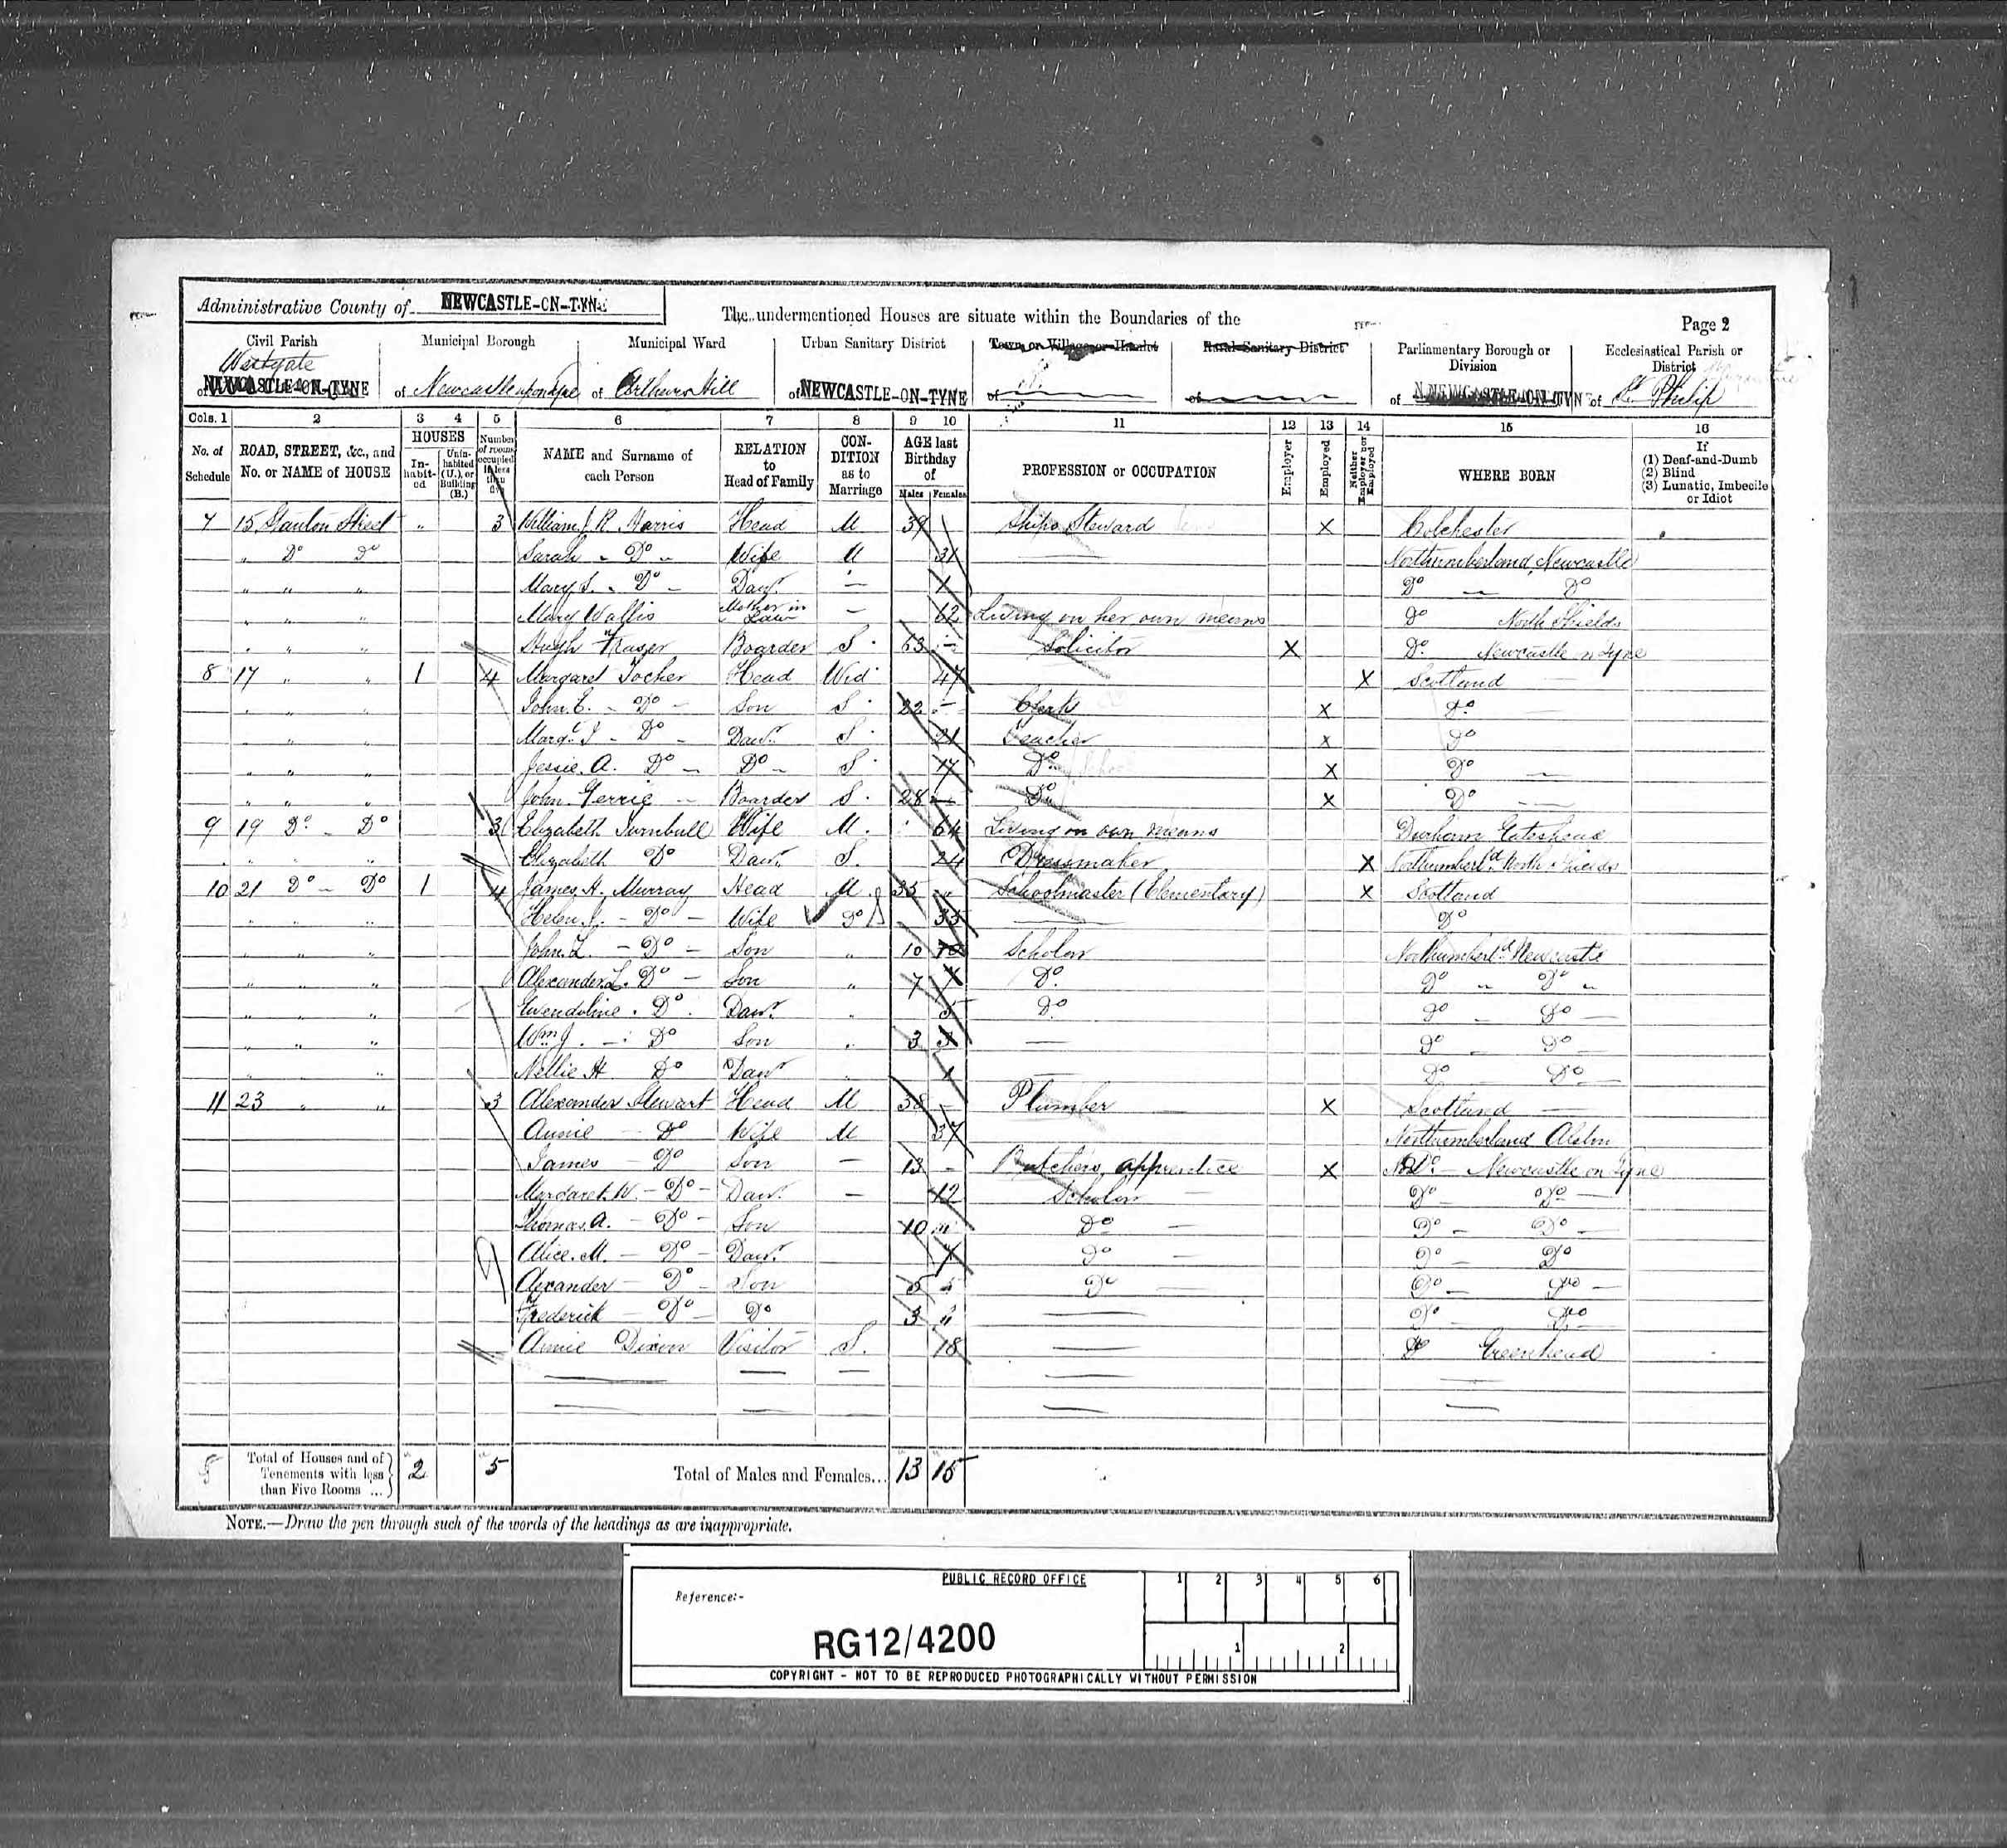 Administrative County of NEWCASTLE-ON-TYNE
The undermentioned Houses are situate within the Boundaries of the
Page 2
Civil Parish Municipal Borough Municipal Ward Urban Sanitary District Town or Village or Hamlet Rural Sanitary District Parliamentary Borough or Division Ecclesiastical Parish or District
Westgate
of NEWCASTLE-ON-TYNE of Newcastle upon Tyne of Arthurs Hill of NEWCASTLE-ON-TYNE of of of NEWCASTLE-ON-TYNE of St. Philip
Cols. 1 2 3 4 5 6 7 8 9 10 11 12 13 14 15 16
No. of Schedule ROAD, STREET, &c., and No. or NAME of HOUSE HOUSES Inhabited Uninhabited (U.), or Building (B.) Number of rooms occupied if less than five NAME and Surname of each Person RELATION to Head of Family CONDITION as to Marriage AGE last Birthday of Males Females PROFESSION or OCCUPATION Employer Employed Neither Employer nor Employed WHERE BORN If (1) Deaf-and-Dumb (2) Blind (3) Lunatic, Imbecile or Idiot
7 15 Stanton Street " 3 William J. R. Harris Head M 39 Ships Steward X Colchester
" Do Do Sarah " Do " Wife M 31 Northumberland, Newcastle
" " " Mary S. " Do - Daur. - 1 Do " Do
" " " Mary Wallis Mother in Law - 62 Living on her own means Do North Shields
" " " Hugh Fraser Boarder S 63 Solicitor X Do. Newcastle on Tyne
8 17 " " 1 4 Margaret Tocher Head Wid 47 X Scotland
" " " John. C. - Do - Son S 22 - Clerk X Do
" " " Margt. J - Do - Daur. S 21 Teacher X Do
" " " Jessie. A. Do - Do - S 17 Do X Do
" " " John Gerrie - Boarder S. 28 - Do X Do
9 19 Do. - Do 3 Elizabeth Turnbull Wife M. 64 Living on own means Durham Gateshead
" " " Elizabeth Do Daur. S. 24 Dressmaker X Northumberld. North Shields
10 21 Do - Do 1 4 James H. Murray Head M 35 " Schoolmaster (Elementary) X Scotland
" " " Helen J. - Do - Wife Do 35 Do
" " " John. L. - Do - Son " 10 Scholar Northumberld. Newcastle
" " " Alexander L. Do - Son " 7 Do. Do " Do "
" " " Gwendoline. Do. Daur. " 5 Do Do - Do -
" " " Wm J. - Do Son " 3 - Do - Do -
" " Nellie H. Do Daur " 1 Do - Do -
11 23 " " 3 Alexander Stewart Head M 38 - Plumber X Scotland
Annie - Do Wife M 37 Northumberland Alston
James - Do Son - 13 - Butchers apprentice X Do - Newcastle on Tyne
Margaret. W. - Do - Daur. - 12 Scholar Do - Do -
Thomas. A. - Do - Son 10 " Do Do - Do -
Alice. M. - Do - Daur. 7 Do Do - Do
Alexander - Do - Son 5 Do Do - Do -
Frederick - Do - Do 3 " Do - Do -
Annie Dixon Visitor S. 18 Do Greenhead
Total of Houses and of Tenements with less than Five Rooms ... 2 5 Total of Males and Females... 13 15
NOTE.—Draw the pen through such of the words of the headings as are inappropriate.
PUBLIC RECORD OFFICE
1 2 3 4 5 6
Reference:-
RG12/4200
1 2
COPYRIGHT - NOT TO BE REPRODUCED PHOTOGRAPHICALLY WITHOUT PERMISSION